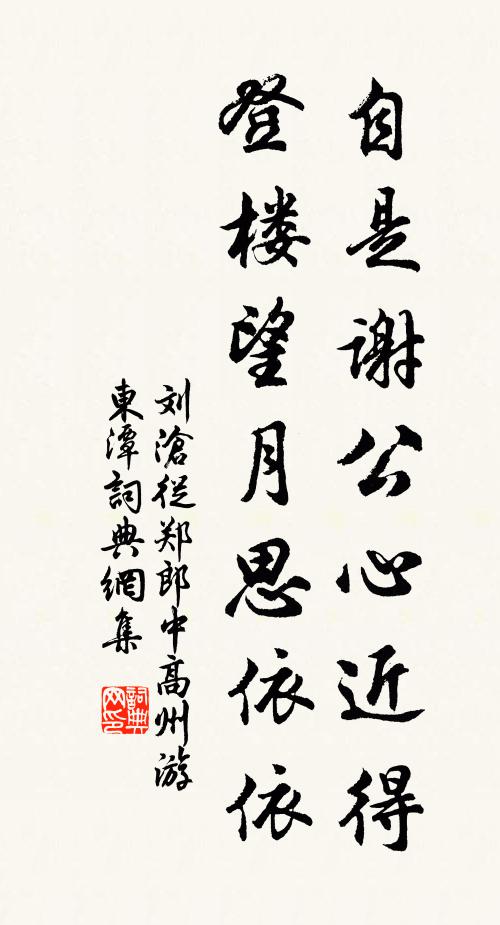 自是谢公心近得
登楼望月思依依
刘滄從郑郎中高州游
東潭詞典網集
詞典网印